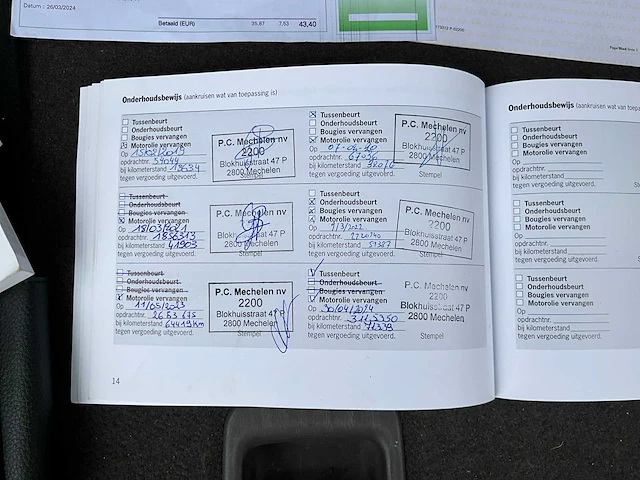 Datum : 26/03/2024
Betaald (EUR) 35,87 7,53 43,40
Onderhoudsbewijs (aankruisen wat van toepassing is)
Tussenbeurt
Onderhoudsbeurt
Bougies vervangen
Motorolie vervangen
Op
opdrachtnr. 54044
bij kilometerstand 19634
tegen vergoeding uitgevoerd.
P.C. Mechelen nv
2200
Blokhuisstraat 47 P
2800 Mechelen
Stempel
Tussenbeurt
Onderhoudsbeurt
Bougies vervangen
Motorolie vervangen
Op 07-04-20
opdrachtnr. 67036
bij kilometerstand
tegen vergoeding uitgevoerd.
P.C. Mechelen nv
2200
Blokhuisstraat 47 P
2800 Mechelen
Stempel
Tussenbeurt
Onderhoudsbeurt
Bougies vervangen
Motorolie vervangen
Op 18/03/2021
opdrachtnr. 1836313
bij kilometerstand 41903
tegen vergoeding uitgevoerd.
P.C. Mechelen nv
Blokhuisstraat 47 P
2800 Mechelen
Stempel
Tussenbeurt
Onderhoudsbeurt
Bougies vervangen
Motorolie vervangen
Op 7/3/2022
opdrachtnr. 2220140
bij kilometerstand 51387
tegen vergoeding uitgevoerd.
P.C. Mechelen nv
2200
Blokhuisstraat 47 P
2800 Mechelen
Stempel
Tussenbeurt
Onderhoudsbeurt
Bougies vervangen
Motorolie vervangen
Op 11/05/2023
opdrachtnr. 2653675
bij kilometerstand 64419km
tegen vergoeding uitgevoerd.
P.C. Mechelen nv
2200
Blokhuisstraat 47 P
2800 Mechelen
Stempel
Tussenbeurt
Onderhoudsbeurt
Bougies vervangen
Motorolie vervangen
Op 30/04/2024
opdrachtnr. 3115350
bij kilometerstand 71338
tegen vergoeding uitgevoerd.
P.C. Mechelen nv
2200
Blokhuisstraat 47 P
2800 Mechelen
Stempel
14
Onderhoudsbewijs (aankruisen wat van toepa
Tussenbeurt
Onderhoudsbeurt
Bougies vervangen
Motorolie vervangen
Op
opdrachtnr.
bij kilometerstand
tegen vergoeding uitgevoerd.
Tussenbeurt
Onderhoudsbeurt
Bougies vervangen
Motorolie vervangen
Op
opdrachtnr.
bij kilometerstand
tegen vergoeding uitgevoerd.
Tussenbeurt
Onderhoudsbeurt
Bougies vervangen
Motorolie vervangen
Op
opdrachtnr.
bij kilometerstand
tegen vergoeding uitgevoerd.